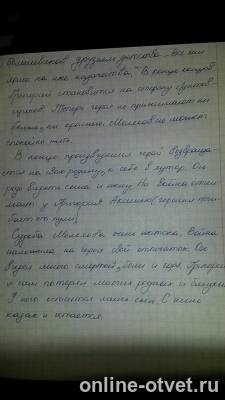 большевиков друзьям детства. Все они
ярмо на шее казачества." В конце концов
Григорий становится на сторону бунтов-
щиков. Теперь героя не принимают ни
белые, ни красные. Мелехов не может
спокойно жить.
В конце произведения герой возвраща-
ется на свою родину, к себе в хутор. Он
видеть сына и жену. Но война отни-
мает у Григория Аксинью (героиня поги-
бает от пули).
Судьба Мелехова очень жестока. Война
наложила на героя свой отпечаток. Он
видел много смертей, боли и горя. Григорий
и сам потерял многих родных и близких.
У него остается лишь сын. С ним
казак и остается.
online-otvet.ru